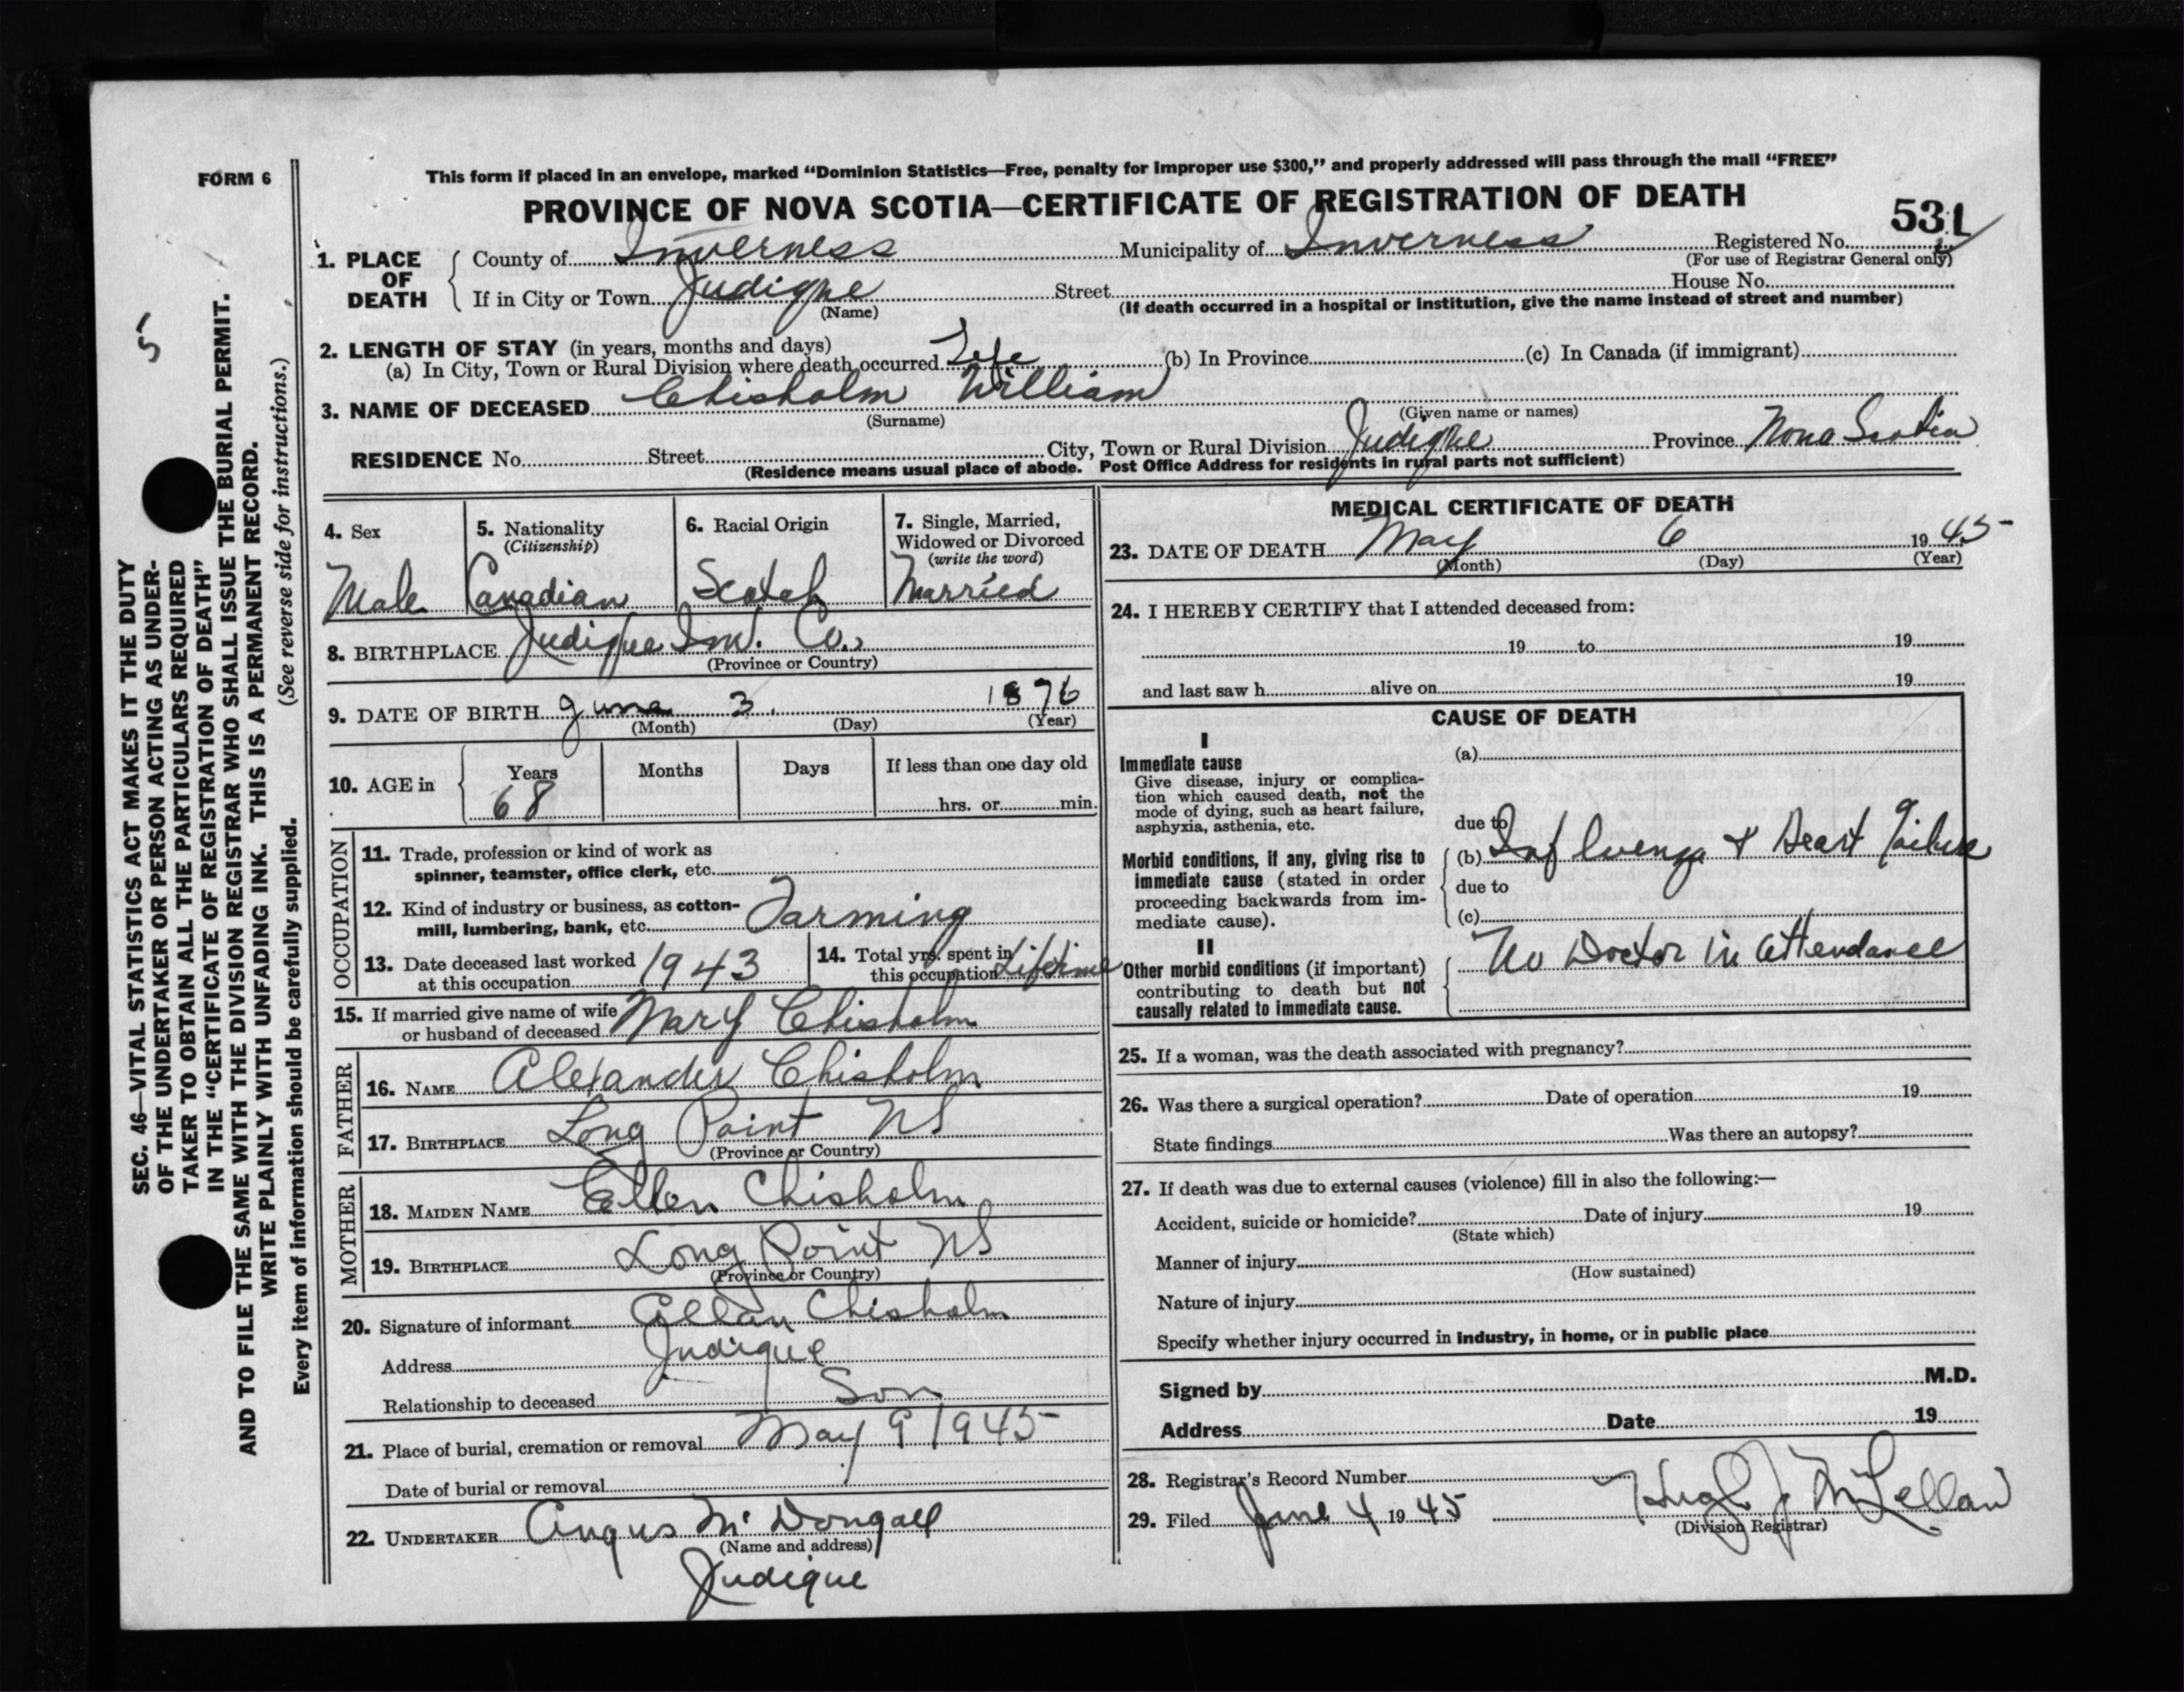 FORM 6
This form if placed in an envelope, marked “Dominion Statistics—Free, penalty for improper use $300,” and properly addressed will pass through the mail “FREE”
PROVINCE OF NOVA SCOTIA—CERTIFICATE OF REGISTRATION OF DEATH
531
1. PLACE OF DEATH
County of Inverness Municipality of Inverness Registered No.
(For use of Registrar General only)
If in City or Town Judique Street House No.
(Name) (If death occurred in a hospital or institution, give the name instead of street and number)
2. LENGTH OF STAY (in years, months and days)
(a) In City, Town or Rural Division where death occurred Life (b) In Province (c) In Canada (if immigrant)
3. NAME OF DECEASED Chisholm William
(Surname) (Given name or names)
RESIDENCE No. Street City, Town or Rural Division Judique Province Nova Scotia
(Residence means usual place of abode. Post Office Address for residents in rural parts not sufficient)
5
SEC. 46—VITAL STATISTICS ACT MAKES IT THE DUTY
OF THE UNDERTAKER OR PERSON ACTING AS UNDER-
TAKER TO OBTAIN ALL THE PARTICULARS REQUIRED
IN THE “CERTIFICATE OF REGISTRATION OF DEATH”
AND TO FILE THE SAME WITH THE DIVISION REGISTRAR WHO SHALL ISSUE THE BURIAL PERMIT.
WRITE PLAINLY WITH UNFADING INK. THIS IS A PERMANENT RECORD.
Every item of information should be carefully supplied. (See reverse side for instructions.)
4. Sex
Male
5. Nationality
(Citizenship)
Canadian
6. Racial Origin
Scotch
7. Single, Married,
Widowed or Divorced
(write the word)
Married
8. BIRTHPLACE Judique Inv. Co.,
(Province or Country)
9. DATE OF BIRTH June 3. 1876
(Month) (Day) (Year)
10. AGE in
Years Months Days If less than one day old
68 hrs. or min.
OCCUPATION
11. Trade, profession or kind of work as
spinner, teamster, office clerk, etc.
12. Kind of industry or business, as cotton-
mill, lumbering, bank, etc. Farming
13. Date deceased last worked
at this occupation 1943
14. Total yrs. spent in
this occupation Lifetime
15. If married give name of wife
or husband of deceased Mary Chisholm
FATHER
16. NAME Alexander Chisholm
17. BIRTHPLACE Long Point NS
(Province or Country)
MOTHER
18. MAIDEN NAME Ellen Chisholm
19. BIRTHPLACE Long Point NS
(Province or Country)
20. Signature of informant Allan Chisholm
Address Judique
Relationship to deceased Son
21. Place of burial, cremation or removal May 9 1945
Date of burial or removal
22. UNDERTAKER Angus Mc Dougall
(Name and address)
Judique
MEDICAL CERTIFICATE OF DEATH
23. DATE OF DEATH May 6 19 45
(Month) (Day) (Year)
24. I HEREBY CERTIFY that I attended deceased from:
19 to 19
and last saw h alive on 19
CAUSE OF DEATH
I
Immediate cause
Give disease, injury or complica-
tion which caused death, not the
mode of dying, such as heart failure,
asphyxia, asthenia, etc.
(a)
due to
Morbid conditions, if any, giving rise to
immediate cause (stated in order
proceeding backwards from im-
mediate cause).
(b) Influenza & Heart Failure
due to
(c)
II
Other morbid conditions (if important)
contributing to death but not
causally related to immediate cause.
No Doctor in attendance
25. If a woman, was the death associated with pregnancy?
26. Was there a surgical operation? Date of operation 19
State findings Was there an autopsy?
27. If death was due to external causes (violence) fill in also the following:—
Accident, suicide or homicide? Date of injury 19
(State which)
Manner of injury
(How sustained)
Nature of injury
Specify whether injury occurred in industry, in home, or in public place
Signed by M.D.
Address Date 19
28. Registrar's Record Number
29. Filed June 4 19 45 Hugh J McLellan
(Division Registrar)